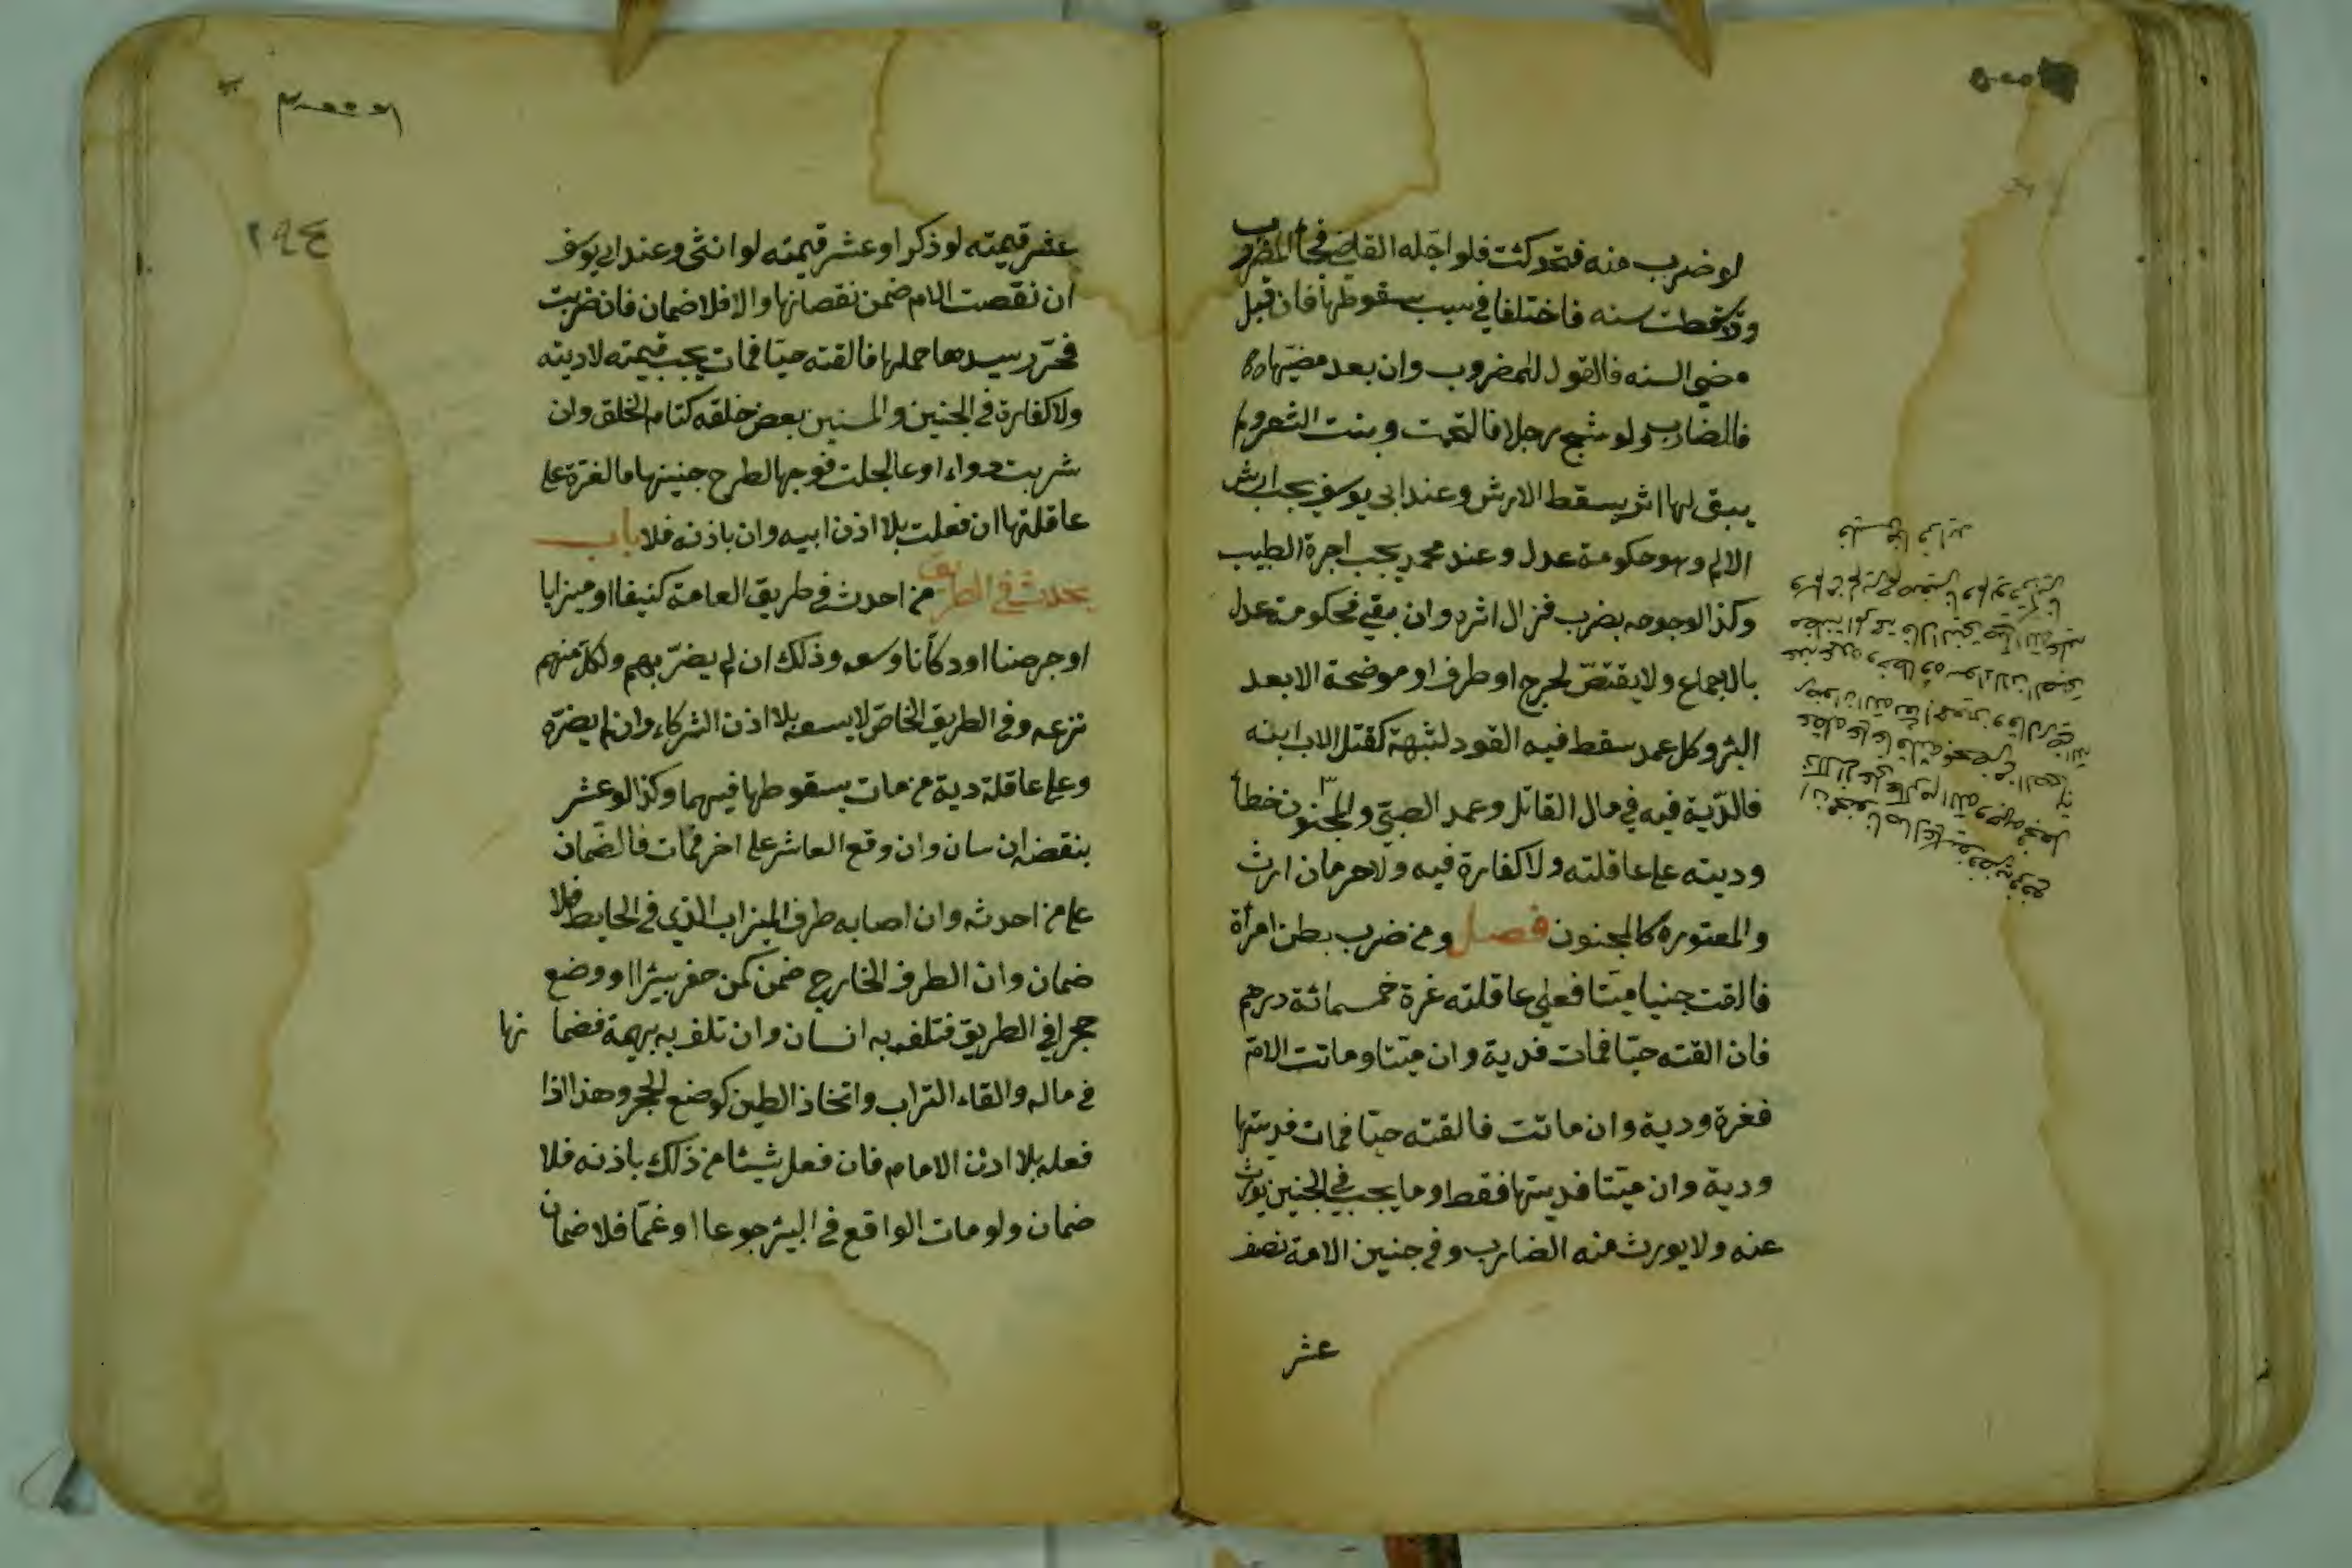 لو ضرب سنه فتحركت فلو اجله القاضي فجاء المضروب
وقد سقطت سنه فاختلفا في سبب سقوطها فان قبل
مضي السنه فالقول للمضروب وان بعد مضيها
فالضارب ولو شج رجلا فالتحمت وبنت الشعر ولم
يبق لها اثر يسقط الارش وعند ابى يوسف يجب ارش
الالم وهو حكومة عدل وعند محمد يجب اجرة الطبيب
وكذا لو جرحه بضرب فزال اثره وان بقي فحكومة عدل
بالاجماع ولا يقتص لجرح او طرف او موضحة الا بعد
البرؤ وكل عمد سقط فيه القود لشبهة كقتل الاب ابنه
فالدّية فيه في مال القاتل وعمد الصبي والمجنون خطأ
وديته على عاقلته ولا كفارة فيه ولا حرمان ارث
والمعتوه كالمجنون فصل ومن ضرب بطن امرأة
فالقت جنينا ميتا فعلى عاقلته غرة خمسمائة درهم
فان القته حيّا فمات فدية وان ميّتا وماتت الامّ
فغرة ودية وان ماتت فالقته حيّا فمات فديتها
ودية وان ميّتا فديتها فقط وما يجب في الجنين يورث
عنه ولا يورث منه الضارب وفي جنين الامة نصف
عشر
٢٩٤
عشر قيمته لو ذكرا وعشر قيمته لو انثى وعند ابى يوسف
ان نقصت الام ضمن نقصانها والا فلا ضمان فان ضربت
فحرّر سيدها حملها فالقته حيّا فمات يجب قيمته لا ديته
ولا كفارة في الجنين والمستبين بعض خلقه كتام الخلق وان
شربت دواء او عالجت فرجها لطرح جنينها فالغرّة على
عاقلتها ان فعلت بلا اذن ابيه وان باذنه فلا باب
يحدث في الطريق من احدث في طريق العامة كنيفا او ميزابا
او جرصنا او دكّانا وسعه وذلك ان لم يضرّ بهم ولكل منهم
نزعه وفى الطريق الخاصّ لا يسعه بلا اذن الشركاء وان لم يضرّه
وعلى عاقلة دية من مات بسقوطها فيهما وكذا لو عثر
بنقضه انسان وان وقع العاثر على اخر فمات فالضّمان
على من احدثه وان اصابه طرف الميزاب الذي في الحايط فلا
ضمان وان الطرف الخارج ضمن كمن حفر بيئرا او وضع
حجرا في الطريق فتلف به انسان وان تلف به بهيمة فضما نها
في ماله والقاء التراب واتخاذ الطين كوضع الحجر وهذا اذا
فعله بلا اذن الامام فان فعل شيئا من ذلك باذنه فلا
ضمان ولو مات الواقع في البيئر جوعا او غمّا فلا ضمان